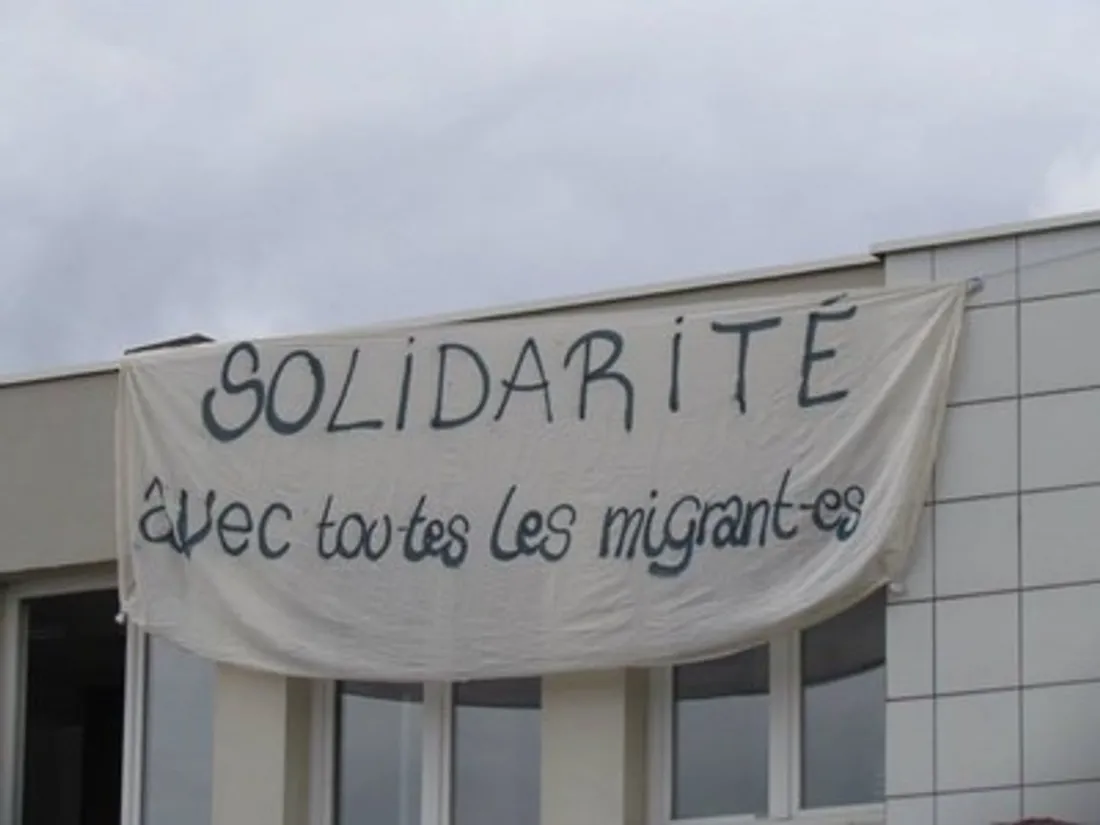 SOLiDARiTÉ
avec tou-tes les migrant-es